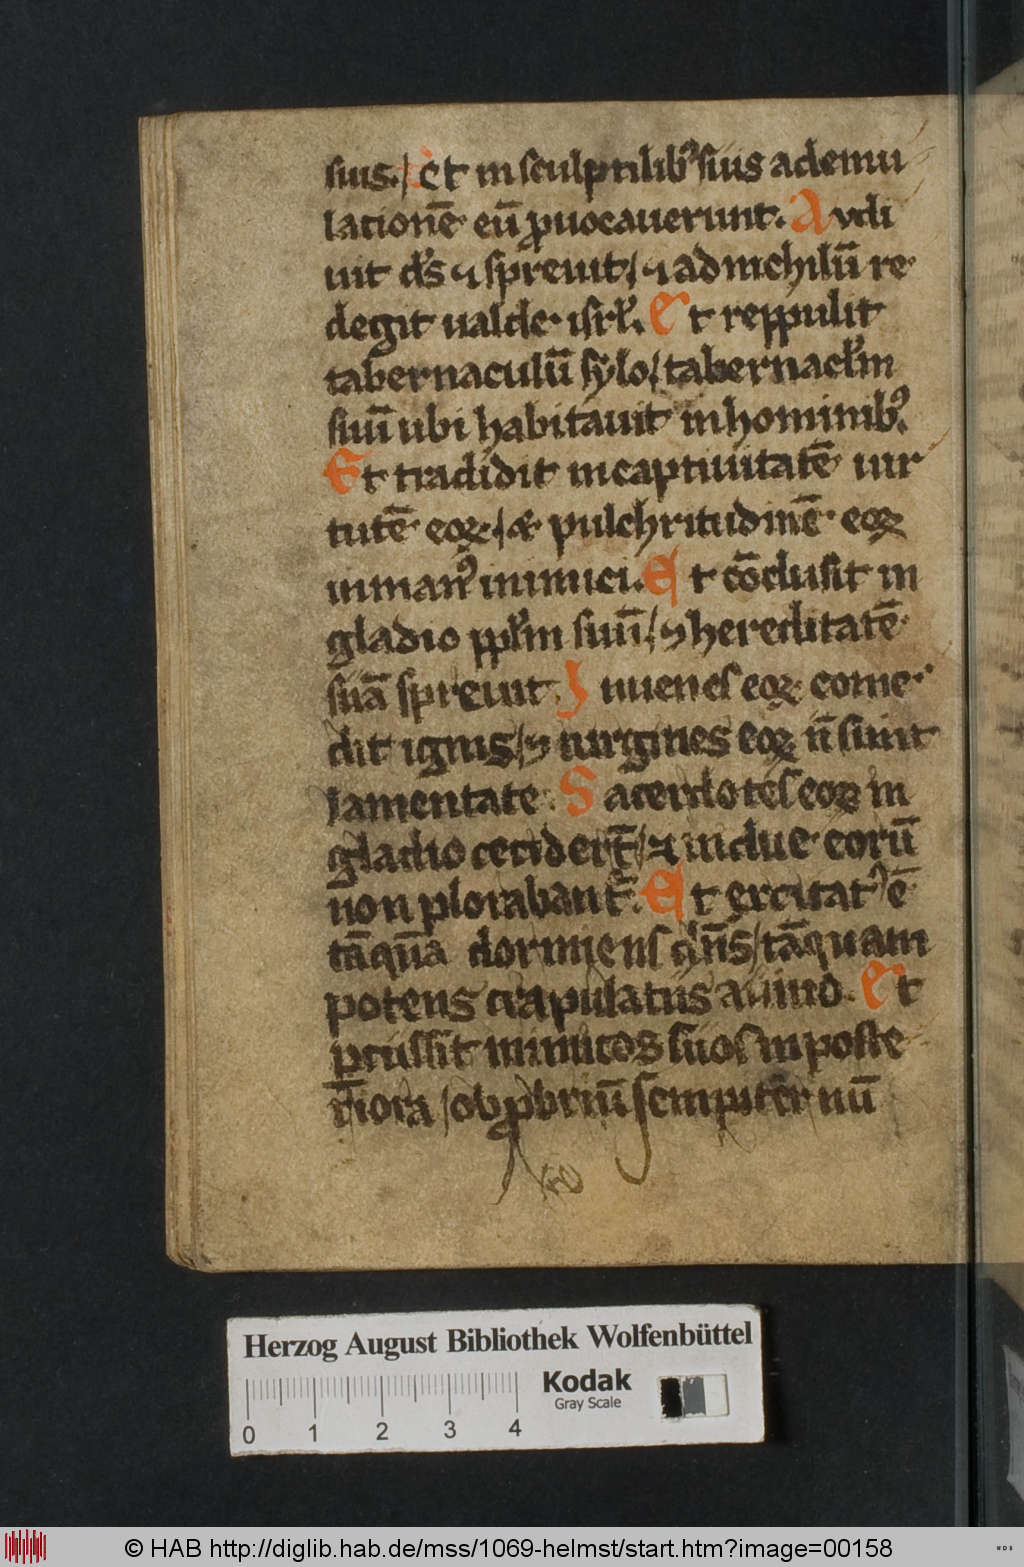 suis. / et in sculptilib᷒ suis ad emu
lationē eū ꝓuocauerunt. Audi
uit ds̄ ⁊ spreuit / ⁊ ad nichilū re
degit ualde isrl̄. Et reppulit
tabernaculū sylo / tabernacl̄m
suū ubi habitauit in hominib᷒.
Et tradidit in captiuitatē uir
tutē eoꝝ / ⁊ pulchritudinē eoꝝ
in man᷒ inimici. Et cōclusit in
gladio ppl̄m suū / ⁊ hereditatē
suā spreuit. Iuuenes eoꝝ come
dit ignis / ⁊ uirgines eoꝝ n̄ sunt
lamentate. Sacerdotes eoꝝ in
gladio cecidert̄ / ⁊ uidue eorū
non plorabant̄. Et excitat᷒ ē
tāquā dormiens dn̄s / tāquam
potens crapulatus a uino. Et
ꝑcussit inimicos suos in poste
riora / obꝓbriū sempiternū
Herzog August Bibliothek Wolfenbüttel
Kodak
Gray Scale
0 1 2 3 4
© HAB http://diglib.hab.de/mss/1069-helmst/start.htm?image=00158